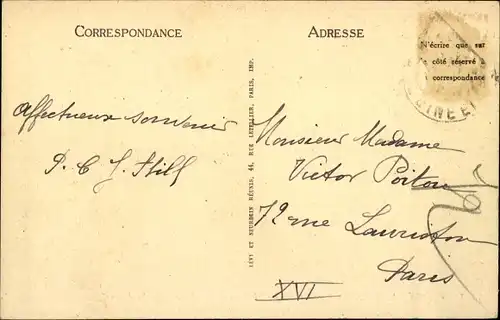 CORRESPONDANCE
ADRESSE
N'écrire que sur
le côté réservé à
la correspondance
Affectueux souvenir
Monsieur Madame
Victor Poitou
72 rue Lauriston
Paris
XVI
LÉVY ET NEURDEIN RÉUNIS, 44, RUE LETELLIER, PARIS, IMP.